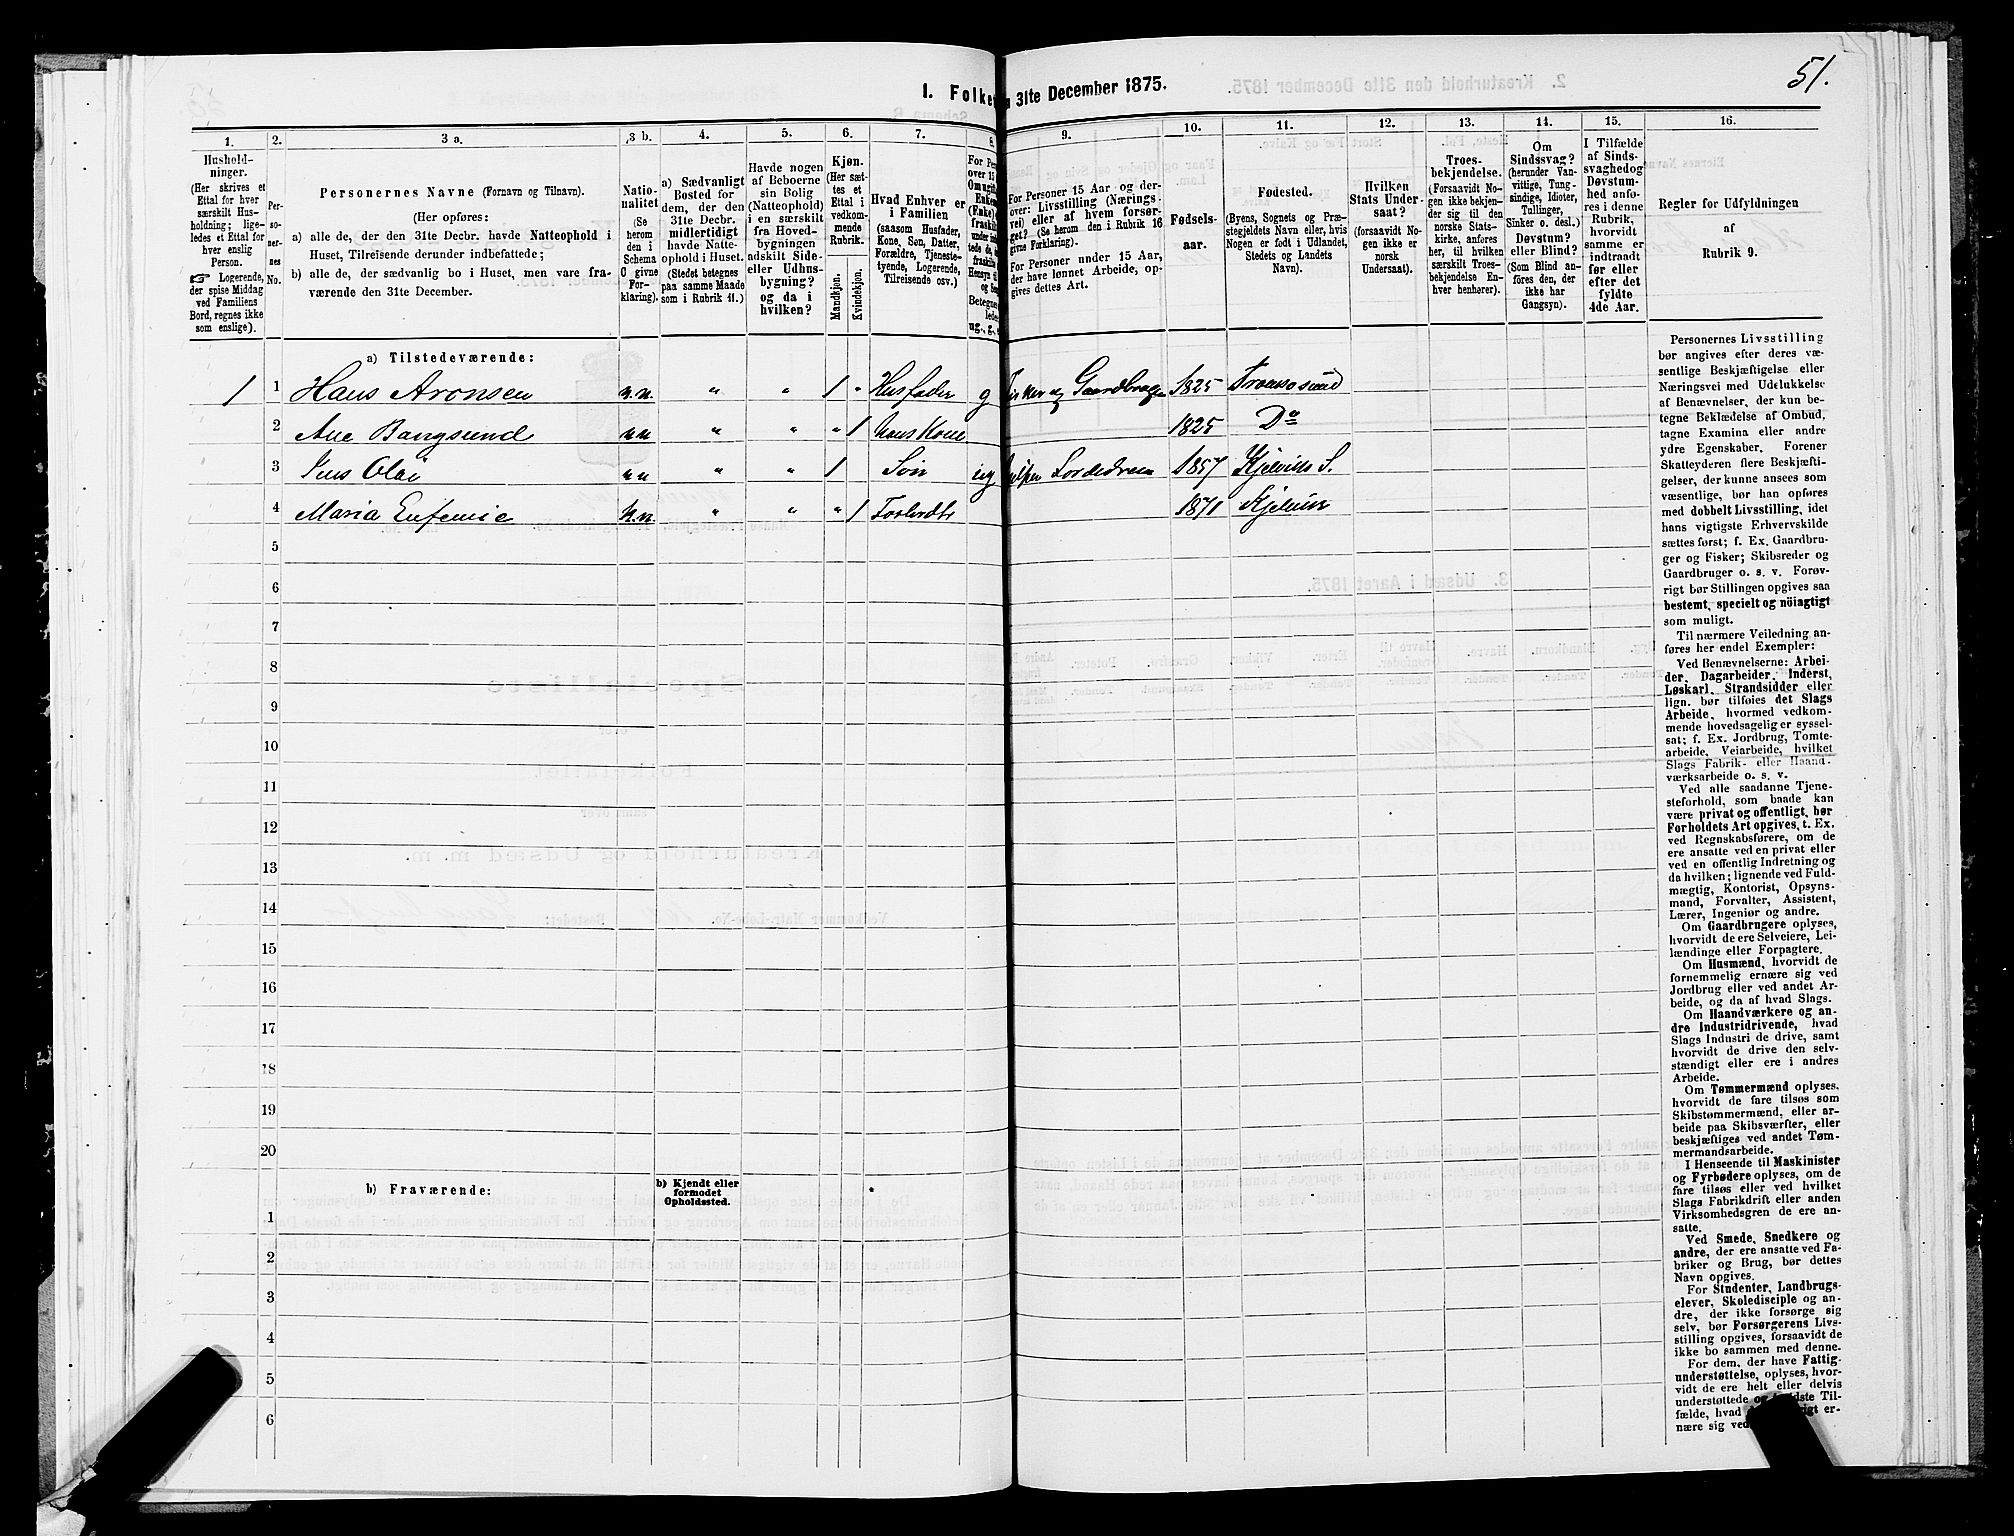 51.
1. Folke 31te December 1875.
1. 2. 3 a. 3 b. 4. 5. 6. 7. 8. 9. 10. 11. 12. 13. 14. 15. 16.
Hushold-
ninger.
(Her skrives et
Ettal for hver
særskilt Hus-
holdning; lige-
ledes et Ettal for
hver enslig
Person.
☞ Logerende,
der spise Middag
ved Familiens
Bord, regnes ikke
som enslige).
Per-
soner-
nes
No.
Personernes Navne (Fornavn og Tilnavn).
(Her opføres:
a) alle de, der den 31te Decbr. havde Natteophold i
Huset, Tilreisende derunder indbefattede;
b) alle de, der sædvanlig bo i Huset, men vare fra-
værende den 31te December.
Natio-
nalitet
(Se
herom
den i
Schema
C givne
For-
klaring).
a) Sædvanligt
Bosted for
dem, der den
31te Decbr.
midlertidigt
havde Natte-
ophold i Huset.
(Stedet betegnes
paa samme Maade
som i Rubrik 11.)
Havde nogen
af Beboerne
sin Bolig
(Natteophold)
i en særskilt
fra Hoved-
bygningen
adskilt Side-
eller Udhus-
bygning?
og da i
hvilken?
Kjøn.
(Her sæt-
tes et
Ettal i
vedkom-
mende
Rubrik.
Mandkjøn.
Kvindekjøn.
Hvad Enhver er
i Familien
(saasom Husfader,
Kone, Søn, Datter,
Forældre, Tjeneste-
tyende, Logerende,
Tilreisende osv.)
For Personer 15 Aar og der-
over: Livsstilling (Nærings-
vei) eller af hvem forsør-
get? (Se herom den i Rubrik 16
givne Forklaring).
For Personer under 15 Aar,
der have lønnet Arbeide, op-
gives dettes Art.
Fødsels-
aar.
Fødested.
(Byens, Sognets og Præ-
stegjeldets Navn eller, hvis
Nogen er født i Udlandet,
Stedets og Landets
Navn).
Hvilken
Stats Under-
saat?
(forsaavidt No-
gen ikke er
norsk
Undersaat).
Troes-
bekjendelse.
(Forsaavidt No-
gen ikke bekjen-
der sig til den
norske Stats-
kirke, anføres
her, til hvilken
særskilt Troes-
bekjendelse En-
hver henhører).
Om
Sindssvag?
(herunder Van-
vittige, Tung-
sindige, Idioter,
Tullinger,
Sinker o. desl.)
Døvstum?
eller Blind?
(Som Blind an-
føres den, der
ikke har
Gangsyn).
I Tilfælde
af Sinds-
svaghedog
Døvstum-
hed anfø-
res i denne
Rubrik,
hvorvidt
samme er
indtraadt
før eller
efter det
fyldte
4de Aar.
Regler for Udfyldningen
af
Rubrik 9.
a) Tilstedeværende:
1 1 Hans Aronsen n.n. " " 1 " Husfader g Gaardbruger 1825 Tromsosund
2 Ane Bangsund nn " " " 1 hans Kone 1825 Do
3 Jens Olai nn " " 1 Søn ug 1857 Kjelviks S.
4 Maria Eufemie n.n. " " " 1 1871 Kjelvik
5
6
7
8
9
10
11
12
13
14
15
16
17
18
19
20
b) Fraværende:
b) Kjendt eller
formodet
Opholdssted.
1
2
3
4
5
6
Personernes Livsstilling
bør angives efter deres væ-
sentlige Beskjæftigelse eller
Næringsvei med Udelukkelse
af Benævnelser, der kun be-
tegne Beklædelse af Ombud,
tagne Examina eller andre
ydre Egenskaber. Forener
Skatteyderen flere Beskjæfti-
gelser, der kunne ansees som
væsentlige, bør han opføres
med dobbelt Livsstilling, idet
hans vigtigste Erhvervskilde
sættes først; f. Ex. Gaardbru-
ger og Fisker; Skibsreder og
Gaardbruger o. s. v. Forøv-
rigt bør Stillingen opgives saa
bestemt, specielt og nöiagtigt
som muligt.
Til nærmere Veiledning an-
føres her endel Exempler:
Ved Benævnelserne: Arbei-
der, Dagarbeider, Inderst,
Løskarl, Strandsidder eller
lign. bør tilføies det Slags
Arbeide, hvormed vedkom-
mende hovedsagelig er syssel-
sat; f. Ex. Jordbrug, Tomte-
arbeide, Veiarbeide, hvilket
Slags Fabrik- eller Haand-
værksarbeide o. s. v.
Ved alle saadanne Tjene-
steforhold, som baade kan
være privat og offentligt, bør
Forholdets Art opgives, t. Ex.
ved Regnskabsførere, om de
ere ansatte ved en privat eller
ved en offentlig Indretning og
da hvilken; lignende ved Fuld-
mægtig, Kontorist, Opsyns-
mand, Forvalter, Assistent,
Lærer, Ingeniør og andre.
Om Gaardbrugere oplyses,
hvorvidt de ere Selveiere, Lei-
lændinge eller Forpagtere.
Om Husmænd, hvorvidt de
fornemmelig ernære sig ved
Jordbrug eller ved andet Ar-
beide, og da af hvad Slags.
Om Haandværkere og an-
dre Industridrivende, hvad
Slags Industri de drive, samt
hvorvidt de drive den selv-
stændigt eller ere i andres
Arbeide.
Om Tømmermænd oplyses,
hvorvidt de fare tilsøs som
Skibstømmermænd, eller ar-
beide paa Skibsværfter, eller
beskjæftiges ved andet Tøm-
mermandsarbeide.
I Henseende til Maskinister
og Fyrbødere oplyses, om de
fare tilsøs eller ved hvilket
Slags Fabrikdrift eller anden
Virksomhedsgren de ere an-
satte.
Ved Smede, Snedkere og
andre, der ere ansatte ved Fa-
briker og Brug, bør dettes
Navn opgives.
For Studenter, Landbrugs-
elever, Skoledisciple og an-
dre, der ikke forsørge sig
selv, bør Forsørgerens Livs-
stilling opgives, forsaavidt de
ikke bo sammen med denne.
For dem, der have Fattig-
understøttelse, oplyses, hvor-
vidt de ere helt eller delvis
understøttede og Til-
fælde, hvad er-
nære sig ved